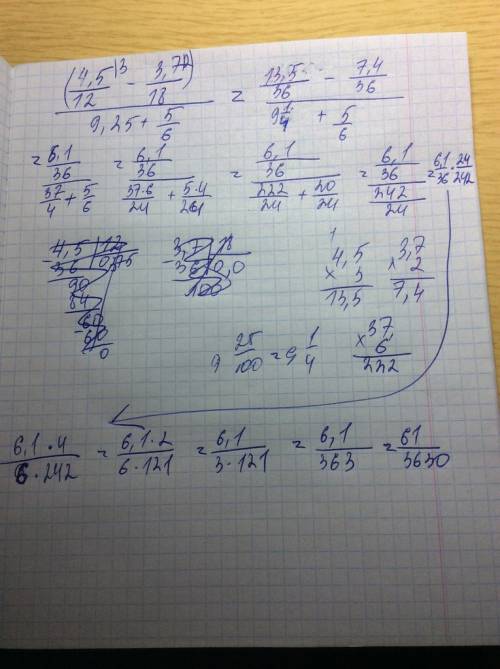 (4,5/12 |3 - 3,7/18 |2) / (9,25 + 5/6) = (13,5/36 - 7,4/36) / (9 1/4 + 5/6)
= (6,1/36) / (37/4 + 5/6) = (6,1/36) / (37·6/24 + 5·4/24) = (6,1/36) / (222/24 + 20/24) = (6,1/36) / (242/24) = 6,1/36 · 24/242
1
4,5 × 3 = 13,5
3,7 × 2 = 7,4
9 25/100 = 9 1/4
37 × 6 = 222
6,1·4 / 6·242 = 6,1·2 / 6·121 = 6,1 / 3·121 = 6,1 / 363 = 61 / 3630